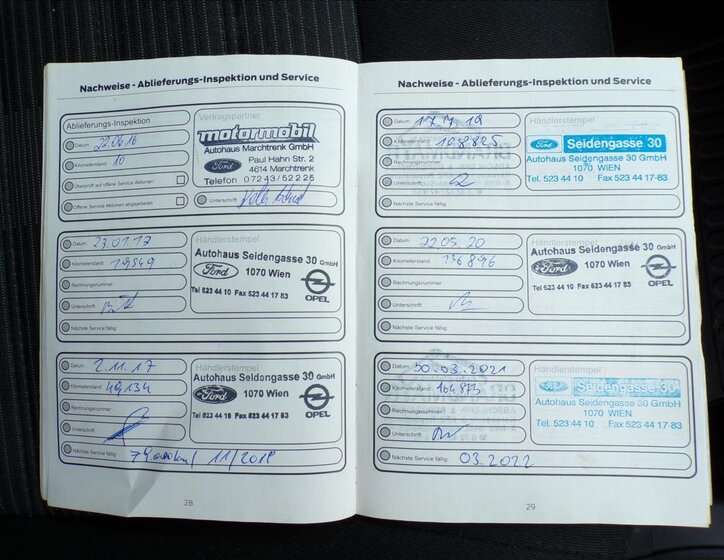 Nachweise - Ablieferungs-Inspektion und Service
Ablieferungs-Inspektion
Datum 22.06.16
Kilometerstand 10
Überprüft auf offene Service Aktionen
Offene Service Aktionen abgearbeitet
Vertragspartner
motormobil
Autohaus Marchtrenk GmbH
Ford
Paul Hahn Str. 2
4614 Marchtrenk
Telefon 07243/52225
Unterschrift
Datum 23.01.17
Kilometerstand 19549
Rechnungsnummer
Unterschrift
Nächste Service fällig
Händlerstempel
Autohaus Seidengasse 30 GmbH
Ford 1070 Wien
OPEL
Tel 523 44 10 Fax 523 44 17 83
Datum 2.11.17
Kilometerstand 49134
Rechnungsnummer
Unterschrift
Nächste Service fällig 79000km/ 11/2018
Händlerstempel
Autohaus Seidengasse 30 GmbH
Ford 1070 Wien
OPEL
Tel 523 44 10 Fax 523 44 17 83
28
Nachweise - Ablieferungs-Inspektion und Service
Datum 17.7.19
Kilometerstand 108825
Rechnungsnummer
Unterschrift
Nächste Service fällig
Händlerstempel
Ford Seidengasse 30
Autohaus Seidengasse 30 GmbH
1070 WIEN
Tel. 523 44 10 Fax 523 44 17-83
Datum 22.05.20
Kilometerstand 136896
Rechnungsnummer
Unterschrift
Nächste Service fällig
Händlerstempel
Autohaus Seidengasse 30 GmbH
Ford 1070 Wien
OPEL
Tel 523 44 10 Fax 523 44 17 83
Datum 30.03.2021
Kilometerstand 164873
Rechnungsnummer
Unterschrift
Nächste Service fällig 03.2022
Händlerstempel
Ford Seidengasse 30
Autohaus Seidengasse 30 GmbH
1070 WIEN
Tel. 523 44 10 Fax 523 44 17-83
29